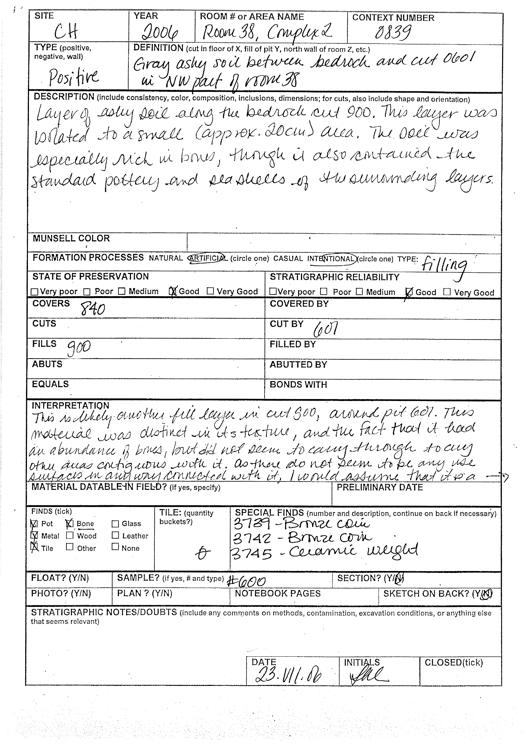 SITE YEAR ROOM # or AREA NAME CONTEXT NUMBER
CH 2006 Room 38, Complex 2 0839
TYPE (positive, negative, wall) DEFINITION (cut in floor of X, fill of pit Y, north wall of room Z, etc.)
Positive Gray ashy soil between bedrock and cut 0601
in NW part of room 38
DESCRIPTION (include consistency, color, composition, inclusions, dimensions; for cuts, also include shape and orientation)
Layer of ashy soil along the bedrock cut 900. This layer was
isolated to a small (approx. 20cm) area. The soil was
especially rich in bones, though it also contained the
standard pottery and seashells of the surrounding layers.
MUNSELL COLOR
FORMATION PROCESSES NATURAL ARTIFICIAL (circle one) CASUAL INTENTIONAL (circle one) TYPE: filling
STATE OF PRESERVATION STRATIGRAPHIC RELIABILITY
Very poor Poor Medium Good Very Good Very poor Poor Medium Good Very Good
COVERS 840 COVERED BY
CUTS CUT BY 601
FILLS 900 FILLED BY
ABUTS ABUTTED BY
EQUALS BONDS WITH
INTERPRETATION
This is likely another fill layer in cut 900, around pit 601. This
material was distinct in its texture, and the fact that it had
an abundance of bones, but did not seem to carry through to any
other areas contiguous with it. As there do not seem to be any use
surfaces in any way connected with it, I would assume that it is a →
MATERIAL DATABLE IN FIELD? (if yes, specify) PRELIMINARY DATE
FINDS (tick) TILE: (quantity buckets?) SPECIAL FINDS (number and description, continue on back if necessary)
Pot Bone Glass 3739 - Bronze coin
Metal Wood Leather 3742 - Bronze coin
Tile Other None 3745 - Ceramic weight
FLOAT? (Y/N) SAMPLE? (if yes, # and type) #600 SECTION? (Y/N)
PHOTO? (Y/N) PLAN? (Y/N) NOTEBOOK PAGES SKETCH ON BACK? (Y/N)
STRATIGRAPHIC NOTES/DOUBTS (include any comments on methods, contamination, excavation conditions, or anything else
that seems relevant)
DATE INITIALS CLOSED(tick)
23.VII.06